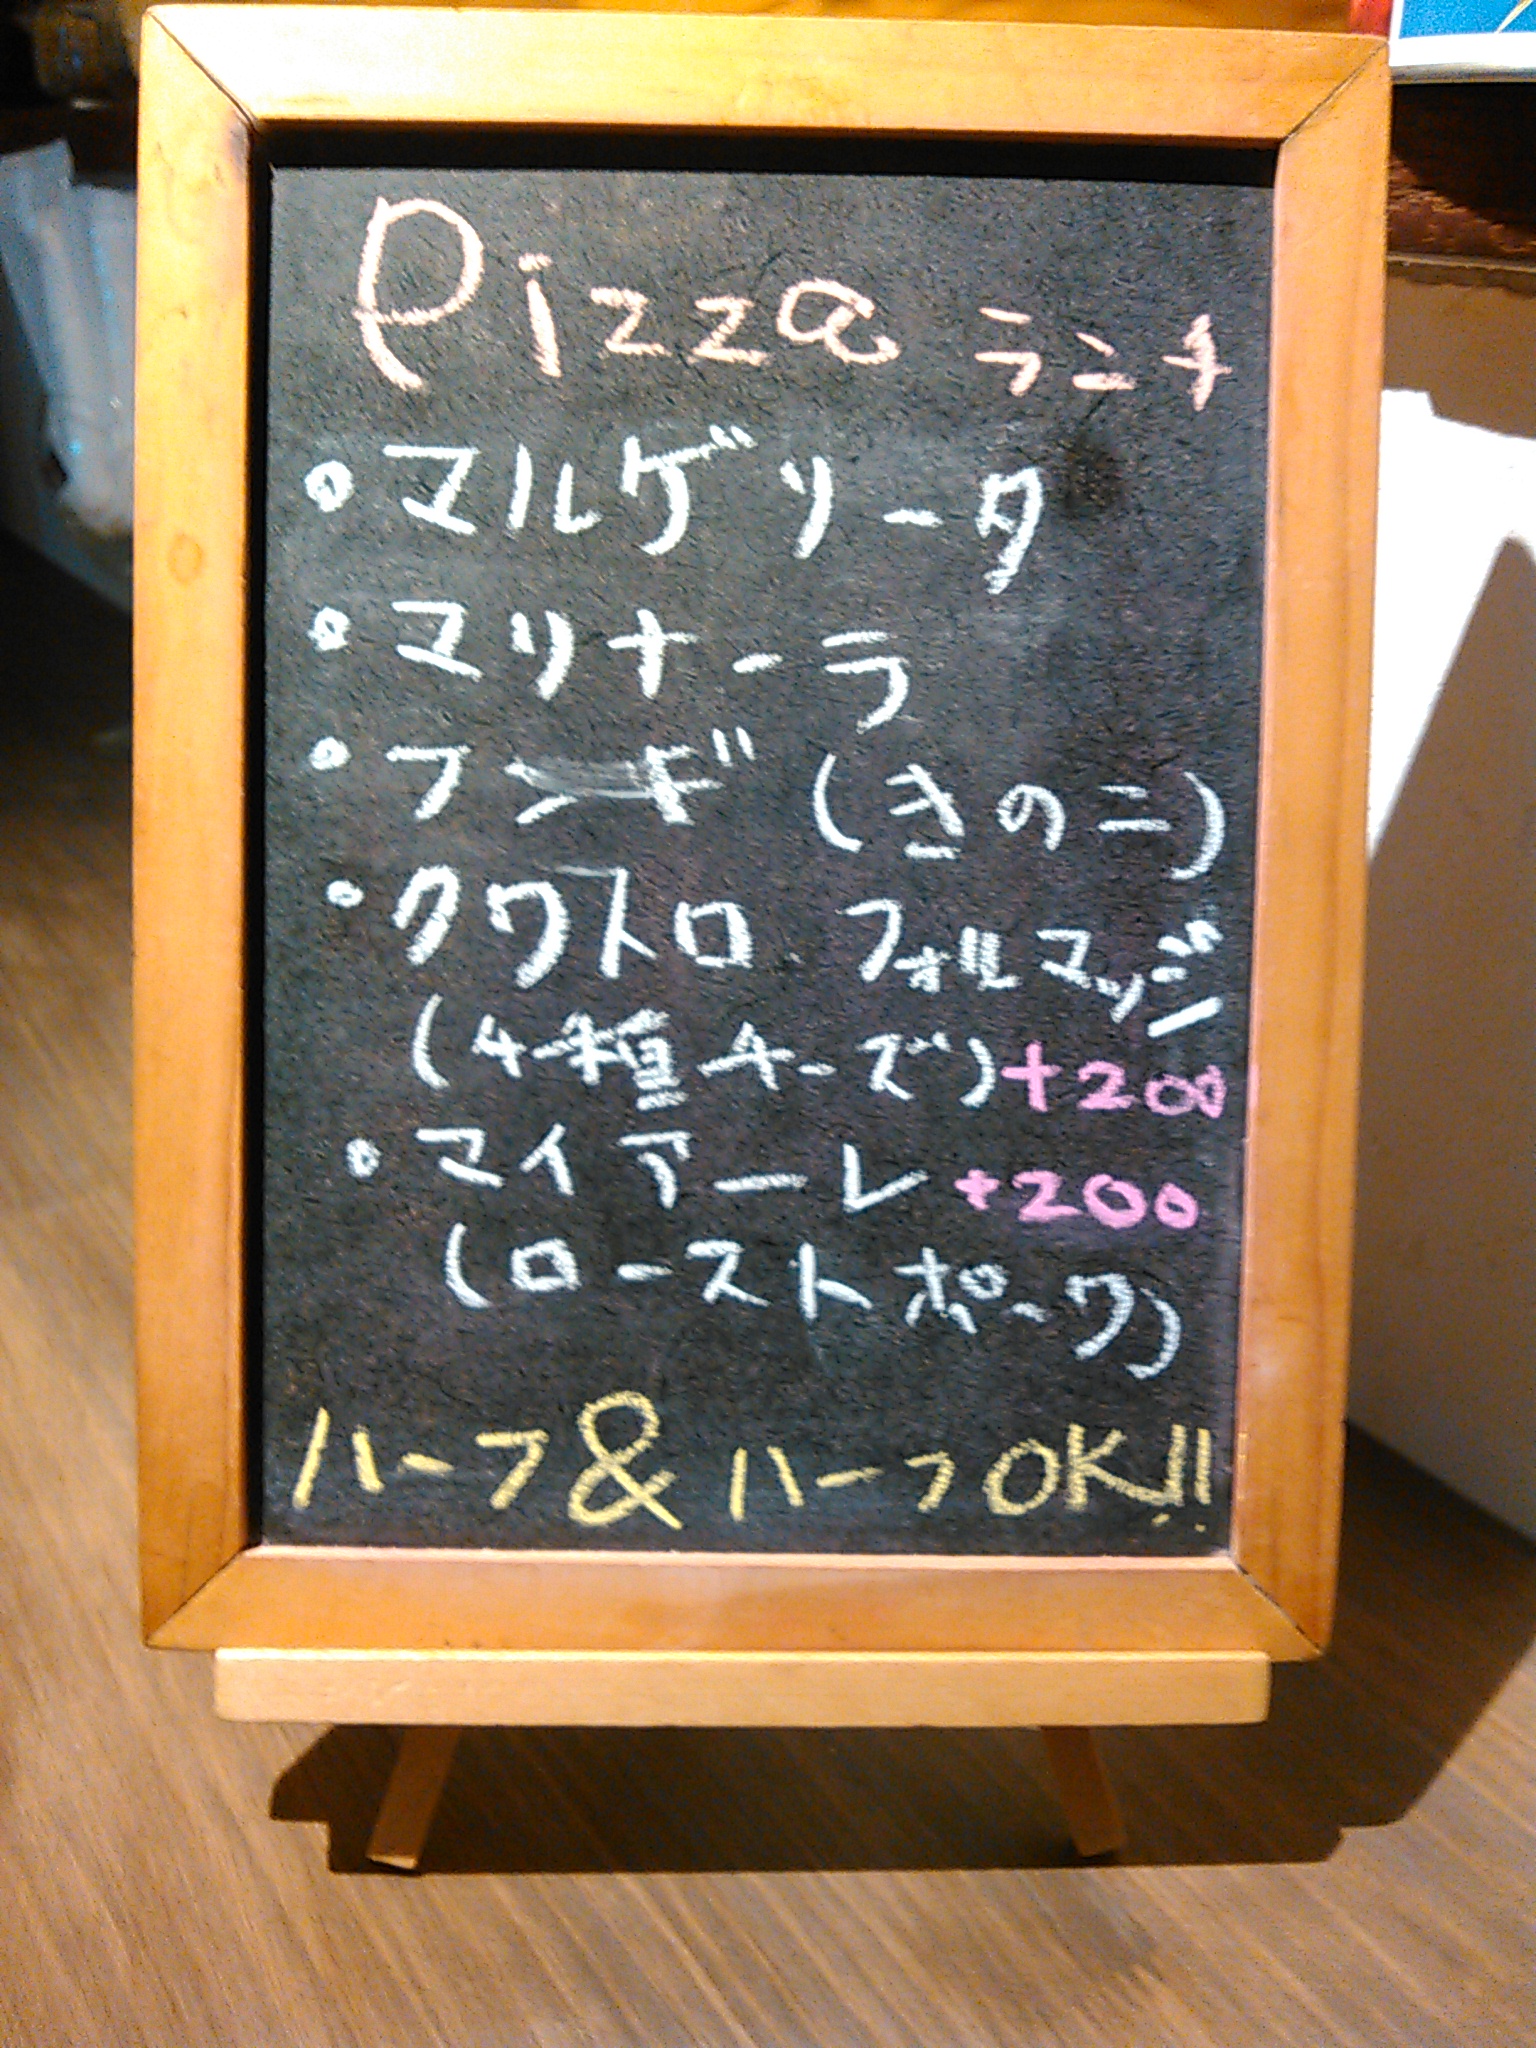 Pizza ランチ
・マルゲリータ
・マリナーラ
・フンギ (きのこ)
・クワトロ フォルマッジ
(4種チーズ)+200
・マイアーレ +200
(ローストポーク)
ハーフ&ハーフOK!!